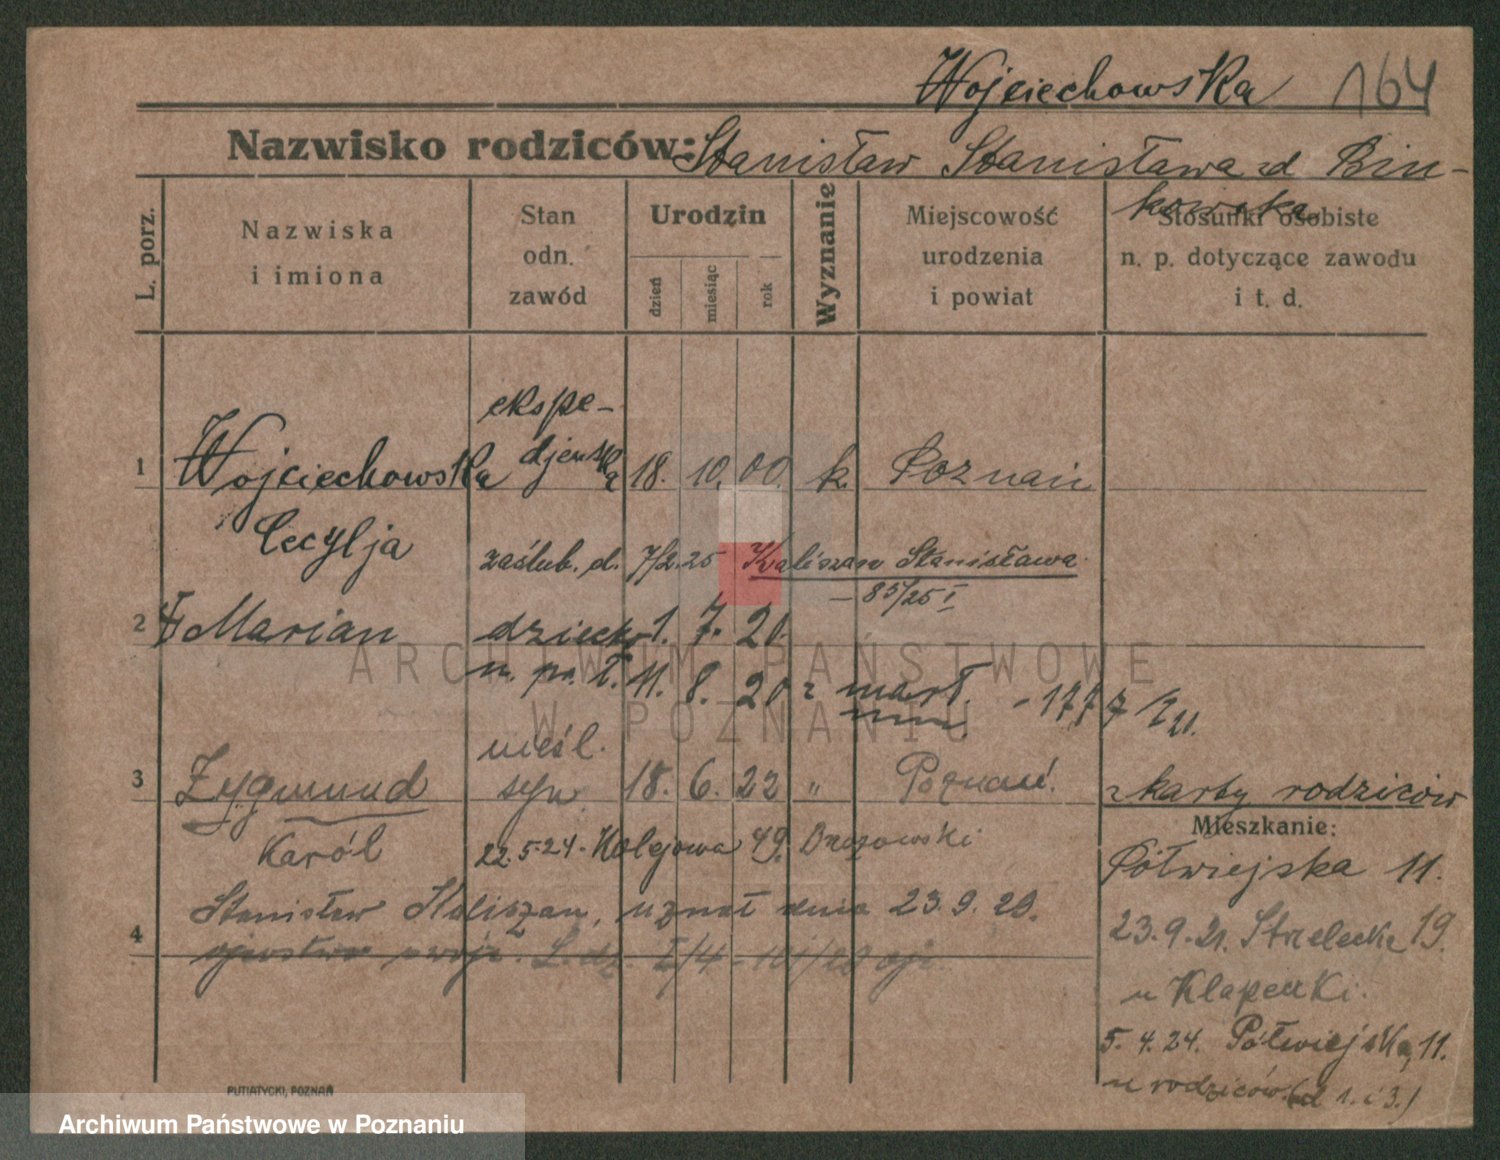 Wojciechowska 164
Nazwisko rodziców: Stanisław Stanisława zd Bin-
kowska
L. porz.
Nazwiska
i imiona
Stan
odn.
zawód
Urodzin
dzień
miesiąc
rok
Wyznanie
Miejscowość
urodzenia
i powiat
Stosunki osobiste
n. p. dotyczące zawodu
i t. d.
ekspe-
1 Wojciechowska djentka 18. 10. 00. k. Poznań
Cecylja
zaślub. d. 7/2.25 Kaliszan Stanisława
- 85/25 I
2 Marian dziecko 1. 7. 20.
11. 8. 20 zmarł. - 1777
nieśl.
3 Zygmund syn 18. 6. 22 " Poznań.
z karty rodziców
Karól
22.5.24. Kolejowa 49. Brzozowski
Mieszkanie:
Półwiejska 11.
4 Stanisław Kaliszan, uznał dnia 23.9.20.
ojcostwo swoje. L. dz.
23.9.21. Strzelecka 19.
u Klapecki.
5. 4. 24. Półwiejska, 11.
u rodziców. (ad 1. i 3.)
PUTIATYCKI, POZNAŃ
ARCHIWUM PAŃSTWOWE
W POZNANIU
Archiwum Państwowe w Poznaniu